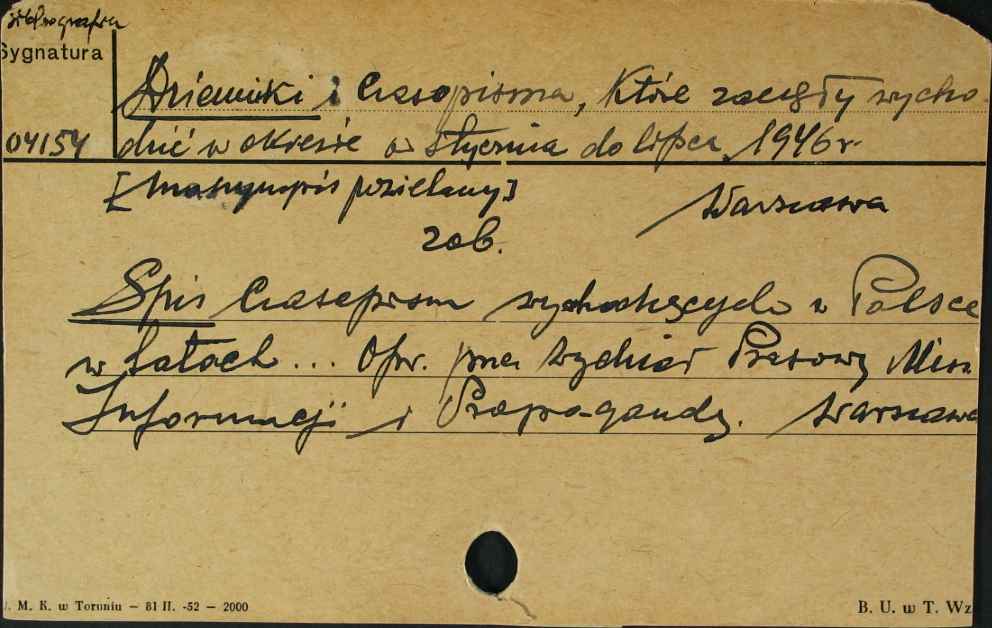 Bibliografia
Sygnatura
Dzienniki i Czasopisma, które zaczęły wycho-
04154 dzić w okresie od stycznia do lipca 1946 r.
[Maszynopis powielany] Warszawa
zob.
Spis Czasopism wychodzących w Polsce
w latach ... Opr. przez Wydział Prasowy Min.
Informacji i Propagandy. Warszawa
U. M. K. w Toruniu — 81 II. -52 — 2000
B. U. w T. Wz